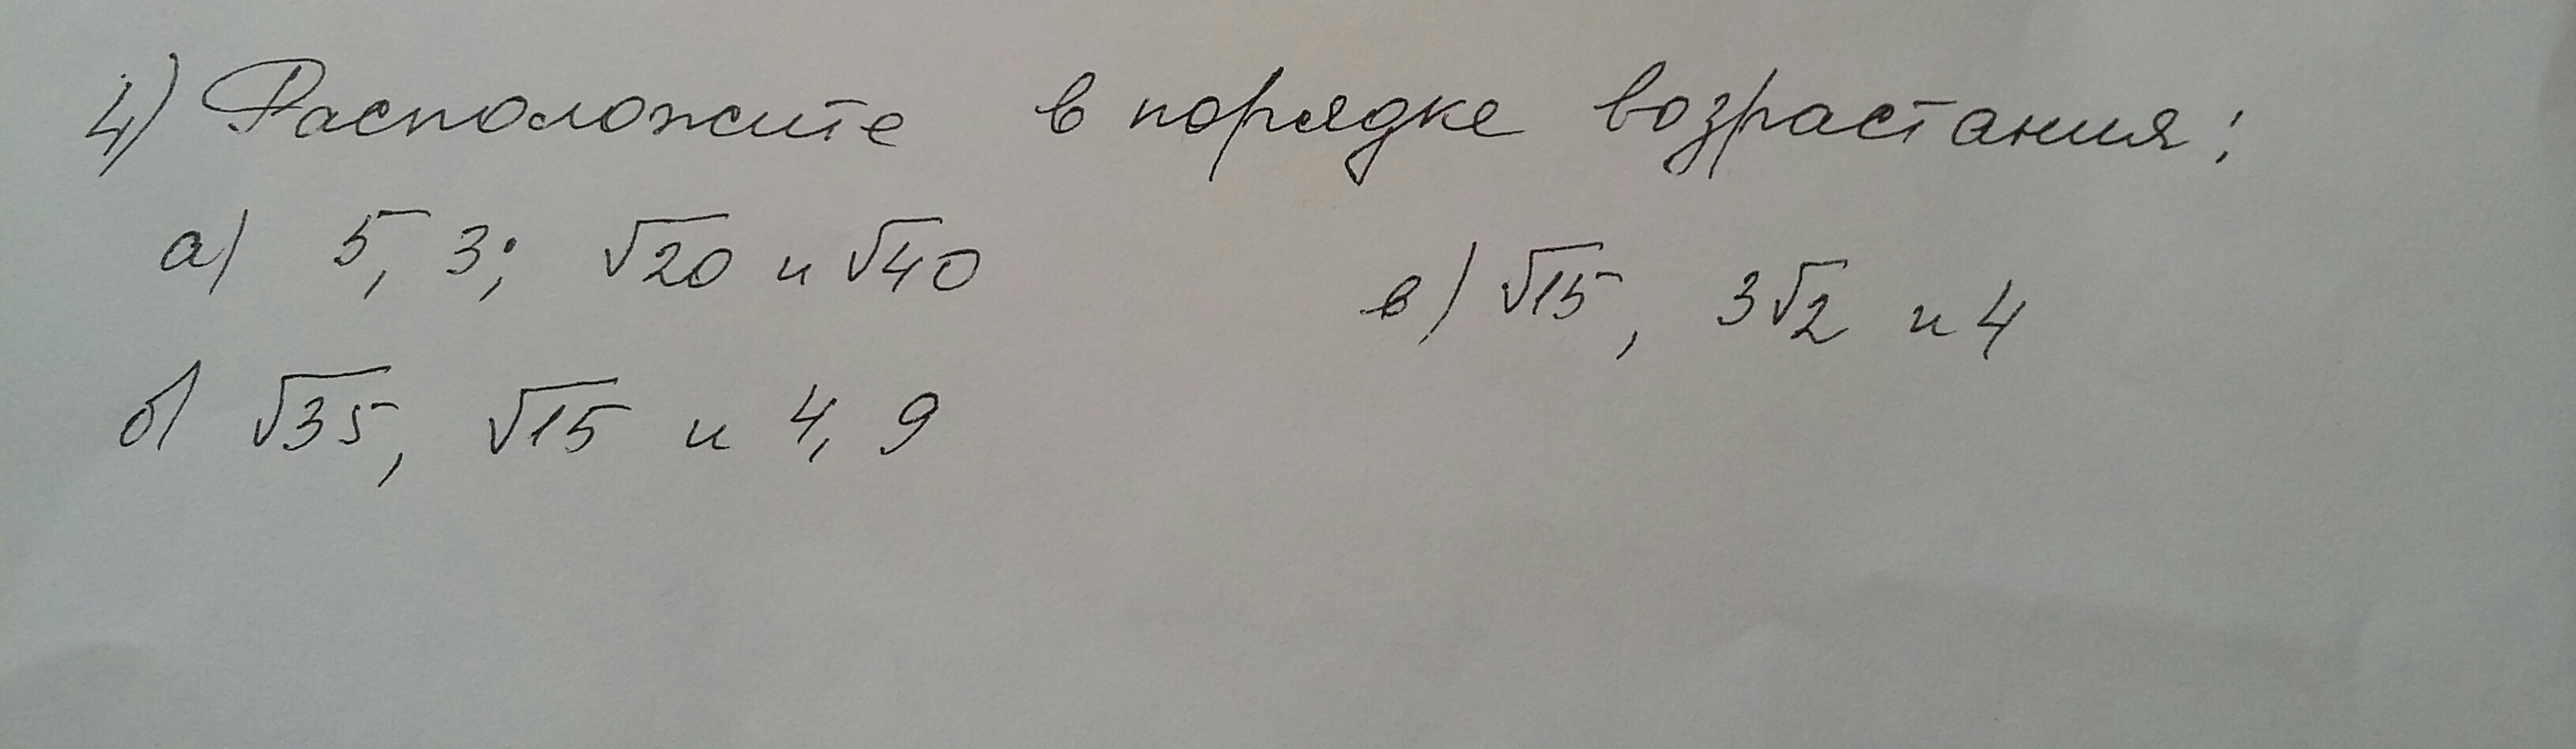 4) Расположите в порядке возрастания:
а) 5,3; √20 и √40
в) √15, 3√2 и 4
б) √35, √15 и 4,9